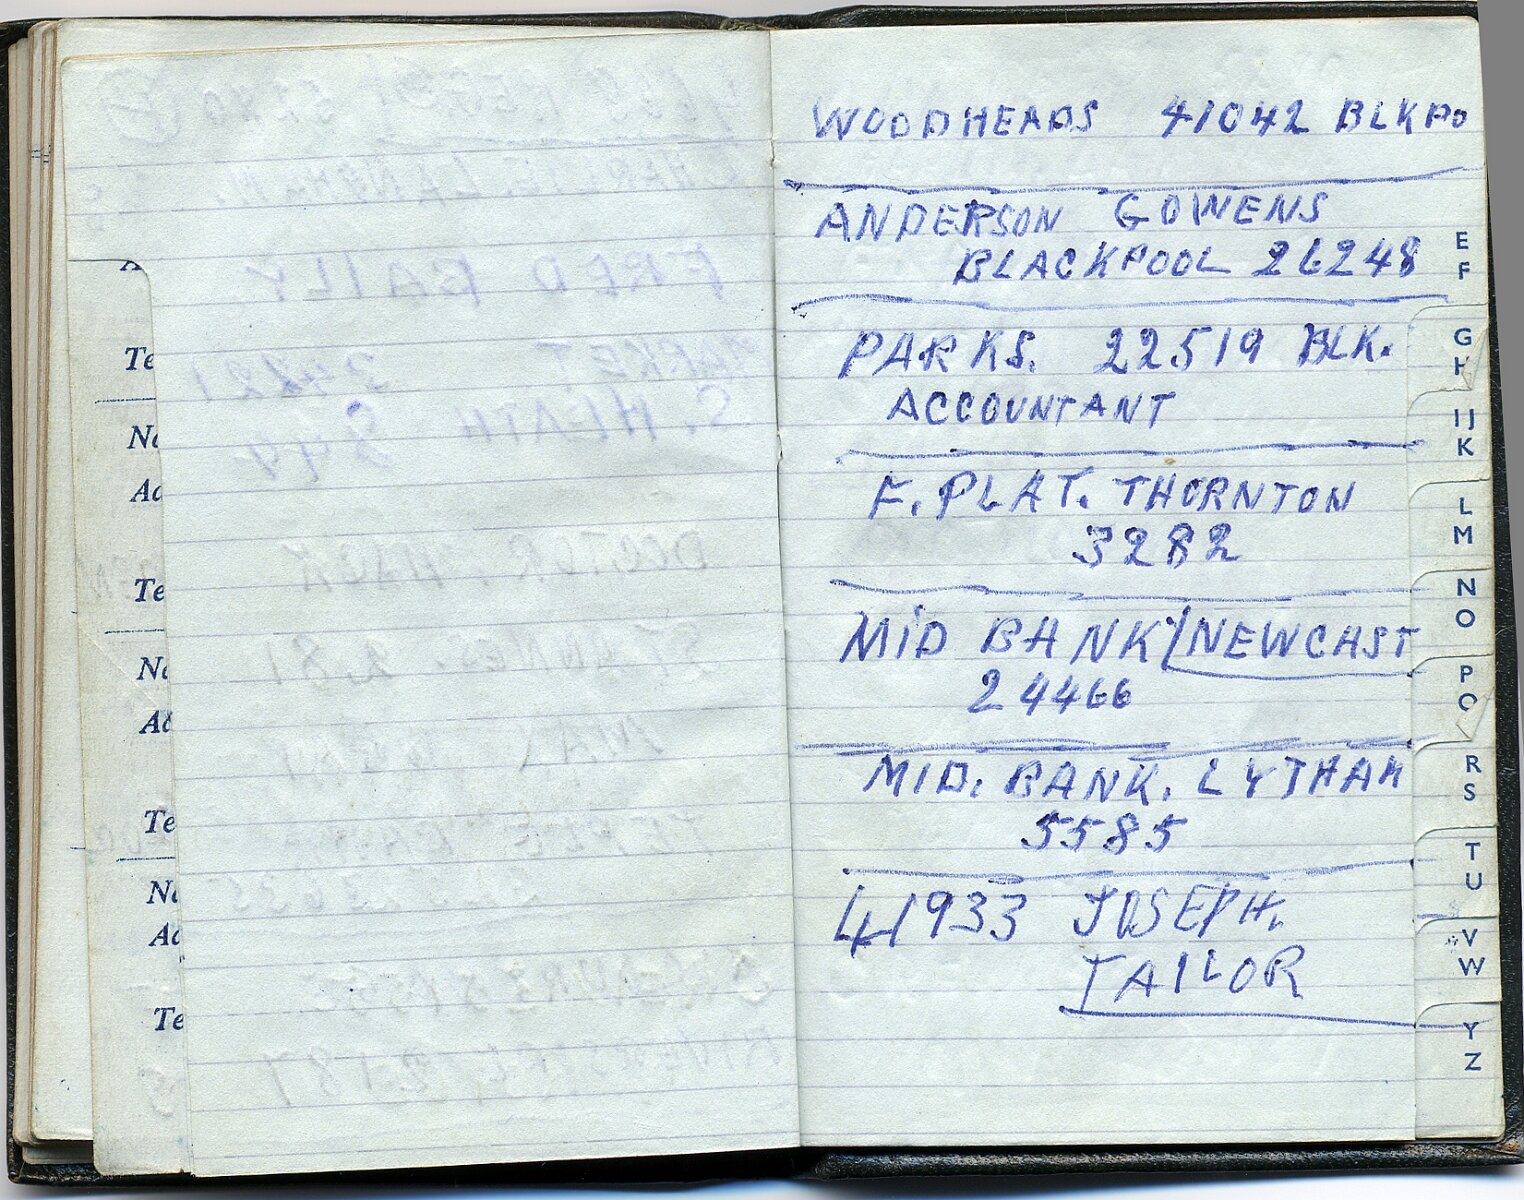 Te
No
Ad
Te
No
Ad
Te
No
Ad
Te
WOODHEADS 41042 BLKPO
ANDERSON GOWENS
BLACKPOOL 26248
PARKS. 22519 BLK.
ACCOUNTANT
F. PLAT. THORNTON
3282
MID BANK NEWCAST
24466
MID. BANK. LYTHAM
5585
41933 JOSEPH.
TAILOR
E
F
G
H
IJ
K
L
M
N
O
P
Q
R
S
T
U
V
W
Y
Z